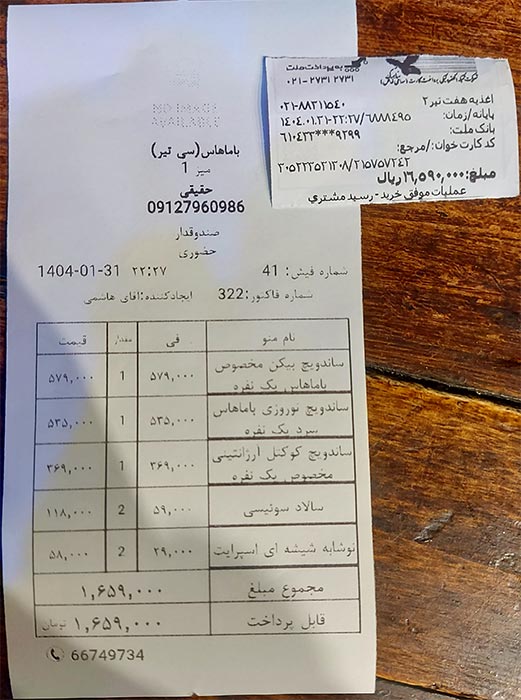 NO IMAGE
AVAILABLE
باماهاس (سی تیر)
میز 1
حقیقی
09127960986
صندوقدار
حضوری
شماره فیش: 41
۲۲:۲۷ 1404-01-31
شماره فاکتور: 322
ایجادکننده: آقای هاشمی
نام منو فی مقدار قیمت
ساندویچ بیکن مخصوص ۵۷۹,۰۰۰ 1 ۵۷۹,۰۰۰
باماهاس یک نفره
ساندویچ نوروزی باماهاس ۵۳۵,۰۰۰ 1 ۵۳۵,۰۰۰
سرد یک نفره
ساندویچ کوکتل آرژانتینی ۳۶۹,۰۰۰ 1 ۳۶۹,۰۰۰
مخصوص یک نفره
سالاد سوئیسی ۵۹,۰۰۰ 2 ۱۱۸,۰۰۰
نوشابه شیشه ای اسپرایت ۲۹,۰۰۰ 2 ۵۸,۰۰۰
مجموع مبلغ ۱,۶۵۹,۰۰۰
قابل پرداخت ۱,۶۵۹,۰۰۰ تومان
66749734
به پرداخت ملت
۰۲۱-۲۷۳۱ ۲۷۳۱
اغذیه هفت تیر۲ ۰۲۱-۸۸۲۱۵۴۰
پایانه/زمان: ۱۴۰۴.۰۱.۳۱-۲۲:۲۷/۶۸۸۸۴۹۵
بانک ملت: ۶۱۰۴۳۳***۹۲۹۹
کد کارت خوان:/مرجع:
۲۰۵۲۲۳۵۲۱۳۰۸/۲۱۵۷۵۷۲۴۲
مبلغ: ۱۶,۵۹۰,۰۰۰ ریال
عملیات موفق خرید- رسید مشتری